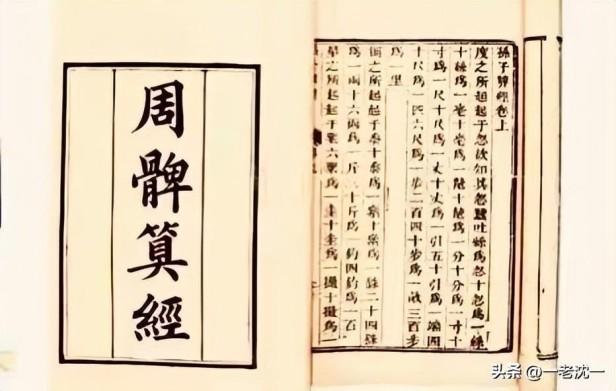 周髀算經
孫子算經卷上
度之所起起于忽欲知其忽蠶吐絲爲忽十忽爲一絲
十絲爲一毫十毫爲一氂十氂爲一分十分爲一寸十
寸爲一尺十尺爲一丈十丈爲一引五十引爲一端四
十尺爲一匹六尺爲一步二百四十步爲一畝三百步
爲一里
稱之所起起于黍十黍爲一絫十絫爲一銖二十四銖
爲一兩十六兩爲一斤三十斤爲一鈞四鈞爲一石
量之所起起于粟六粟爲一圭十圭爲一撮十撮爲一
头条 @一老沈一